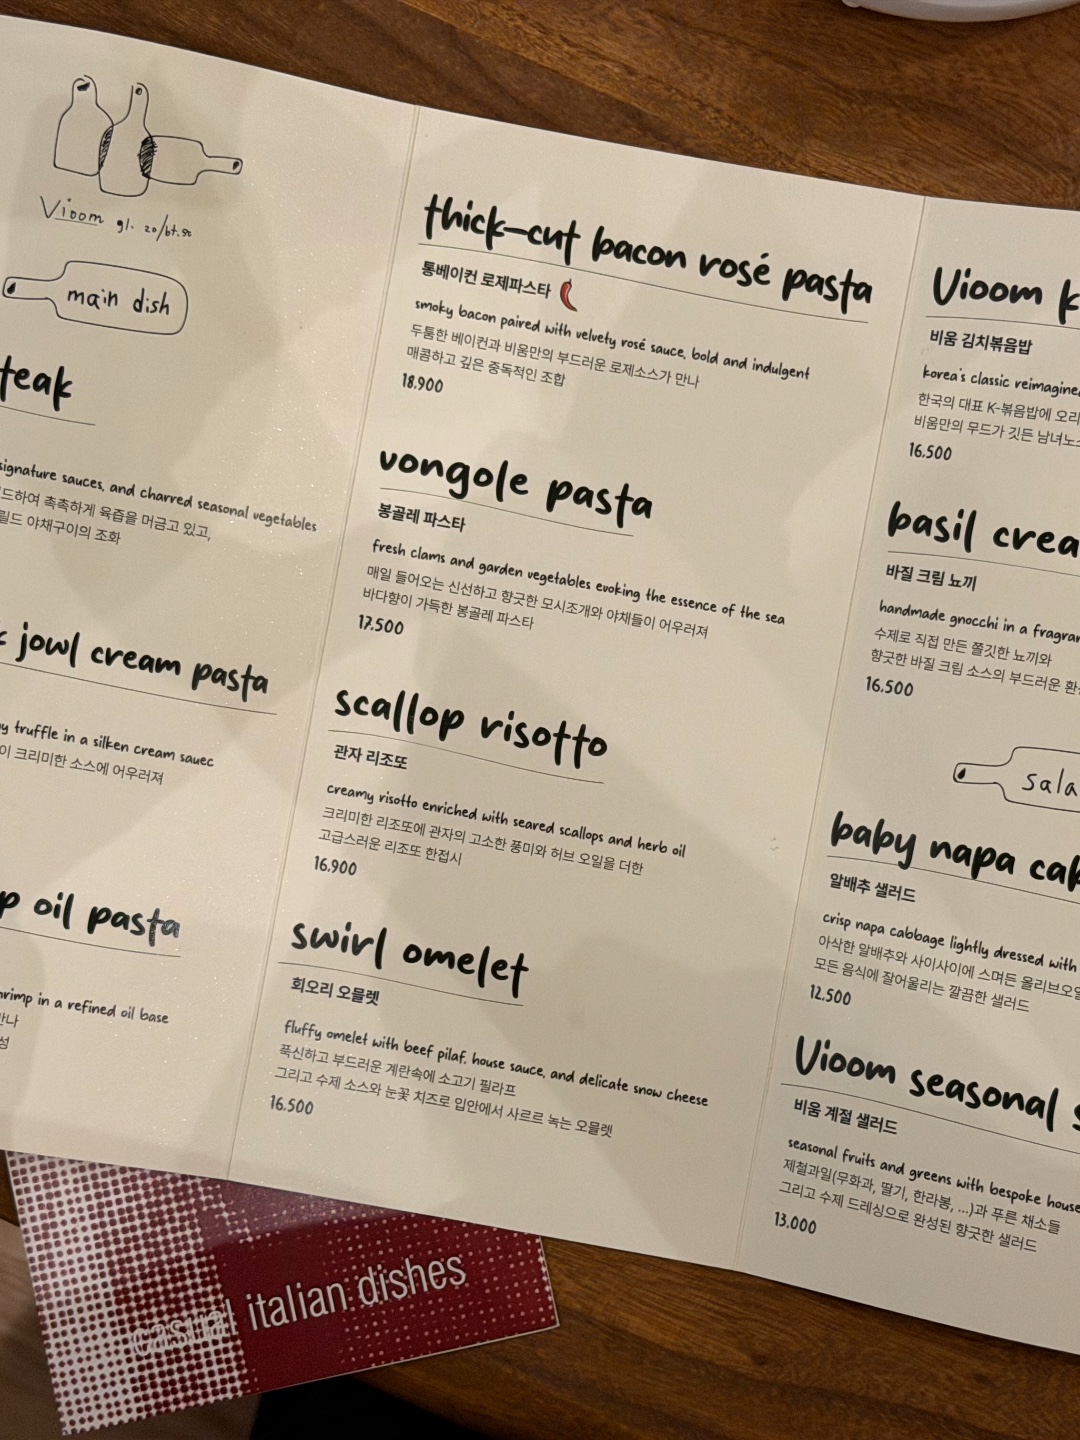 Vioom gl. 20/bt.90
main dish
signature sauces, and charred seasonal vegetables
하여 촉촉하게 육즙을 머금고 있고,
야채구이의 조화
jowl cream pasta
truffle in a silken cream sauec
크리미한 소스에 어우러져
oil pasta
in a refined oil base
thick-cut bacon rosé pasta
통베이컨 로제파스타
smoky bacon paired with velvety rosé sauce, bold and indulgent
두툼한 베이컨과 비움만의 부드러운 로제소스가 만나
매콤하고 깊은 중독적인 조합
18.900
vongole pasta
봉골레 파스타
fresh clams and garden vegetables evoking the essence of the sea
매일 들어오는 신선하고 향긋한 모시조개와 야채들이 어우러져
바다향이 가득한 봉골레 파스타
17.500
scallop risotto
관자 리조또
creamy risotto enriched with seared scallops and herb oil
크리미한 리조또에 관자의 고소한 풍미와 허브 오일을 더한
고급스러운 리조또 한접시
16.900
swirl omelet
회오리 오믈렛
fluffy omelet with beef pilaf, house sauce, and delicate snow cheese
푹신하고 부드러운 계란속에 소고기 필라프
그리고 수제 소스와 눈꽃 치즈로 입안에서 사르르 녹는 오믈렛
16.500
Vioom
비움 김치볶음밥
korea's classic reimagined
한국의 대표 K-볶음밥에
비움만의 무드가 깃든
16.500
basil
바질 크림 뇨끼
handmade gnocchi in a
수제로 직접 만든 쫄깃한 뇨끼와
향긋한 바질 크림 소스의 부드러운
16.500
baby napa
알배추 샐러드
crisp napa cabbage lightly dressed with
아삭한 알배추와 사이사이에 스며든
모든 음식에 잘어울리는 깔끔한 샐러드
12.500
Vioom seasonal
비움 계절 샐러드
seasonal fruits and greens with bespoke house
제철과일(무화과, 딸기, 한라봉, ...)과 푸른 채소들
그리고 수제 드레싱으로 완성된 향긋한 샐러드
13.000
casual italian dishes